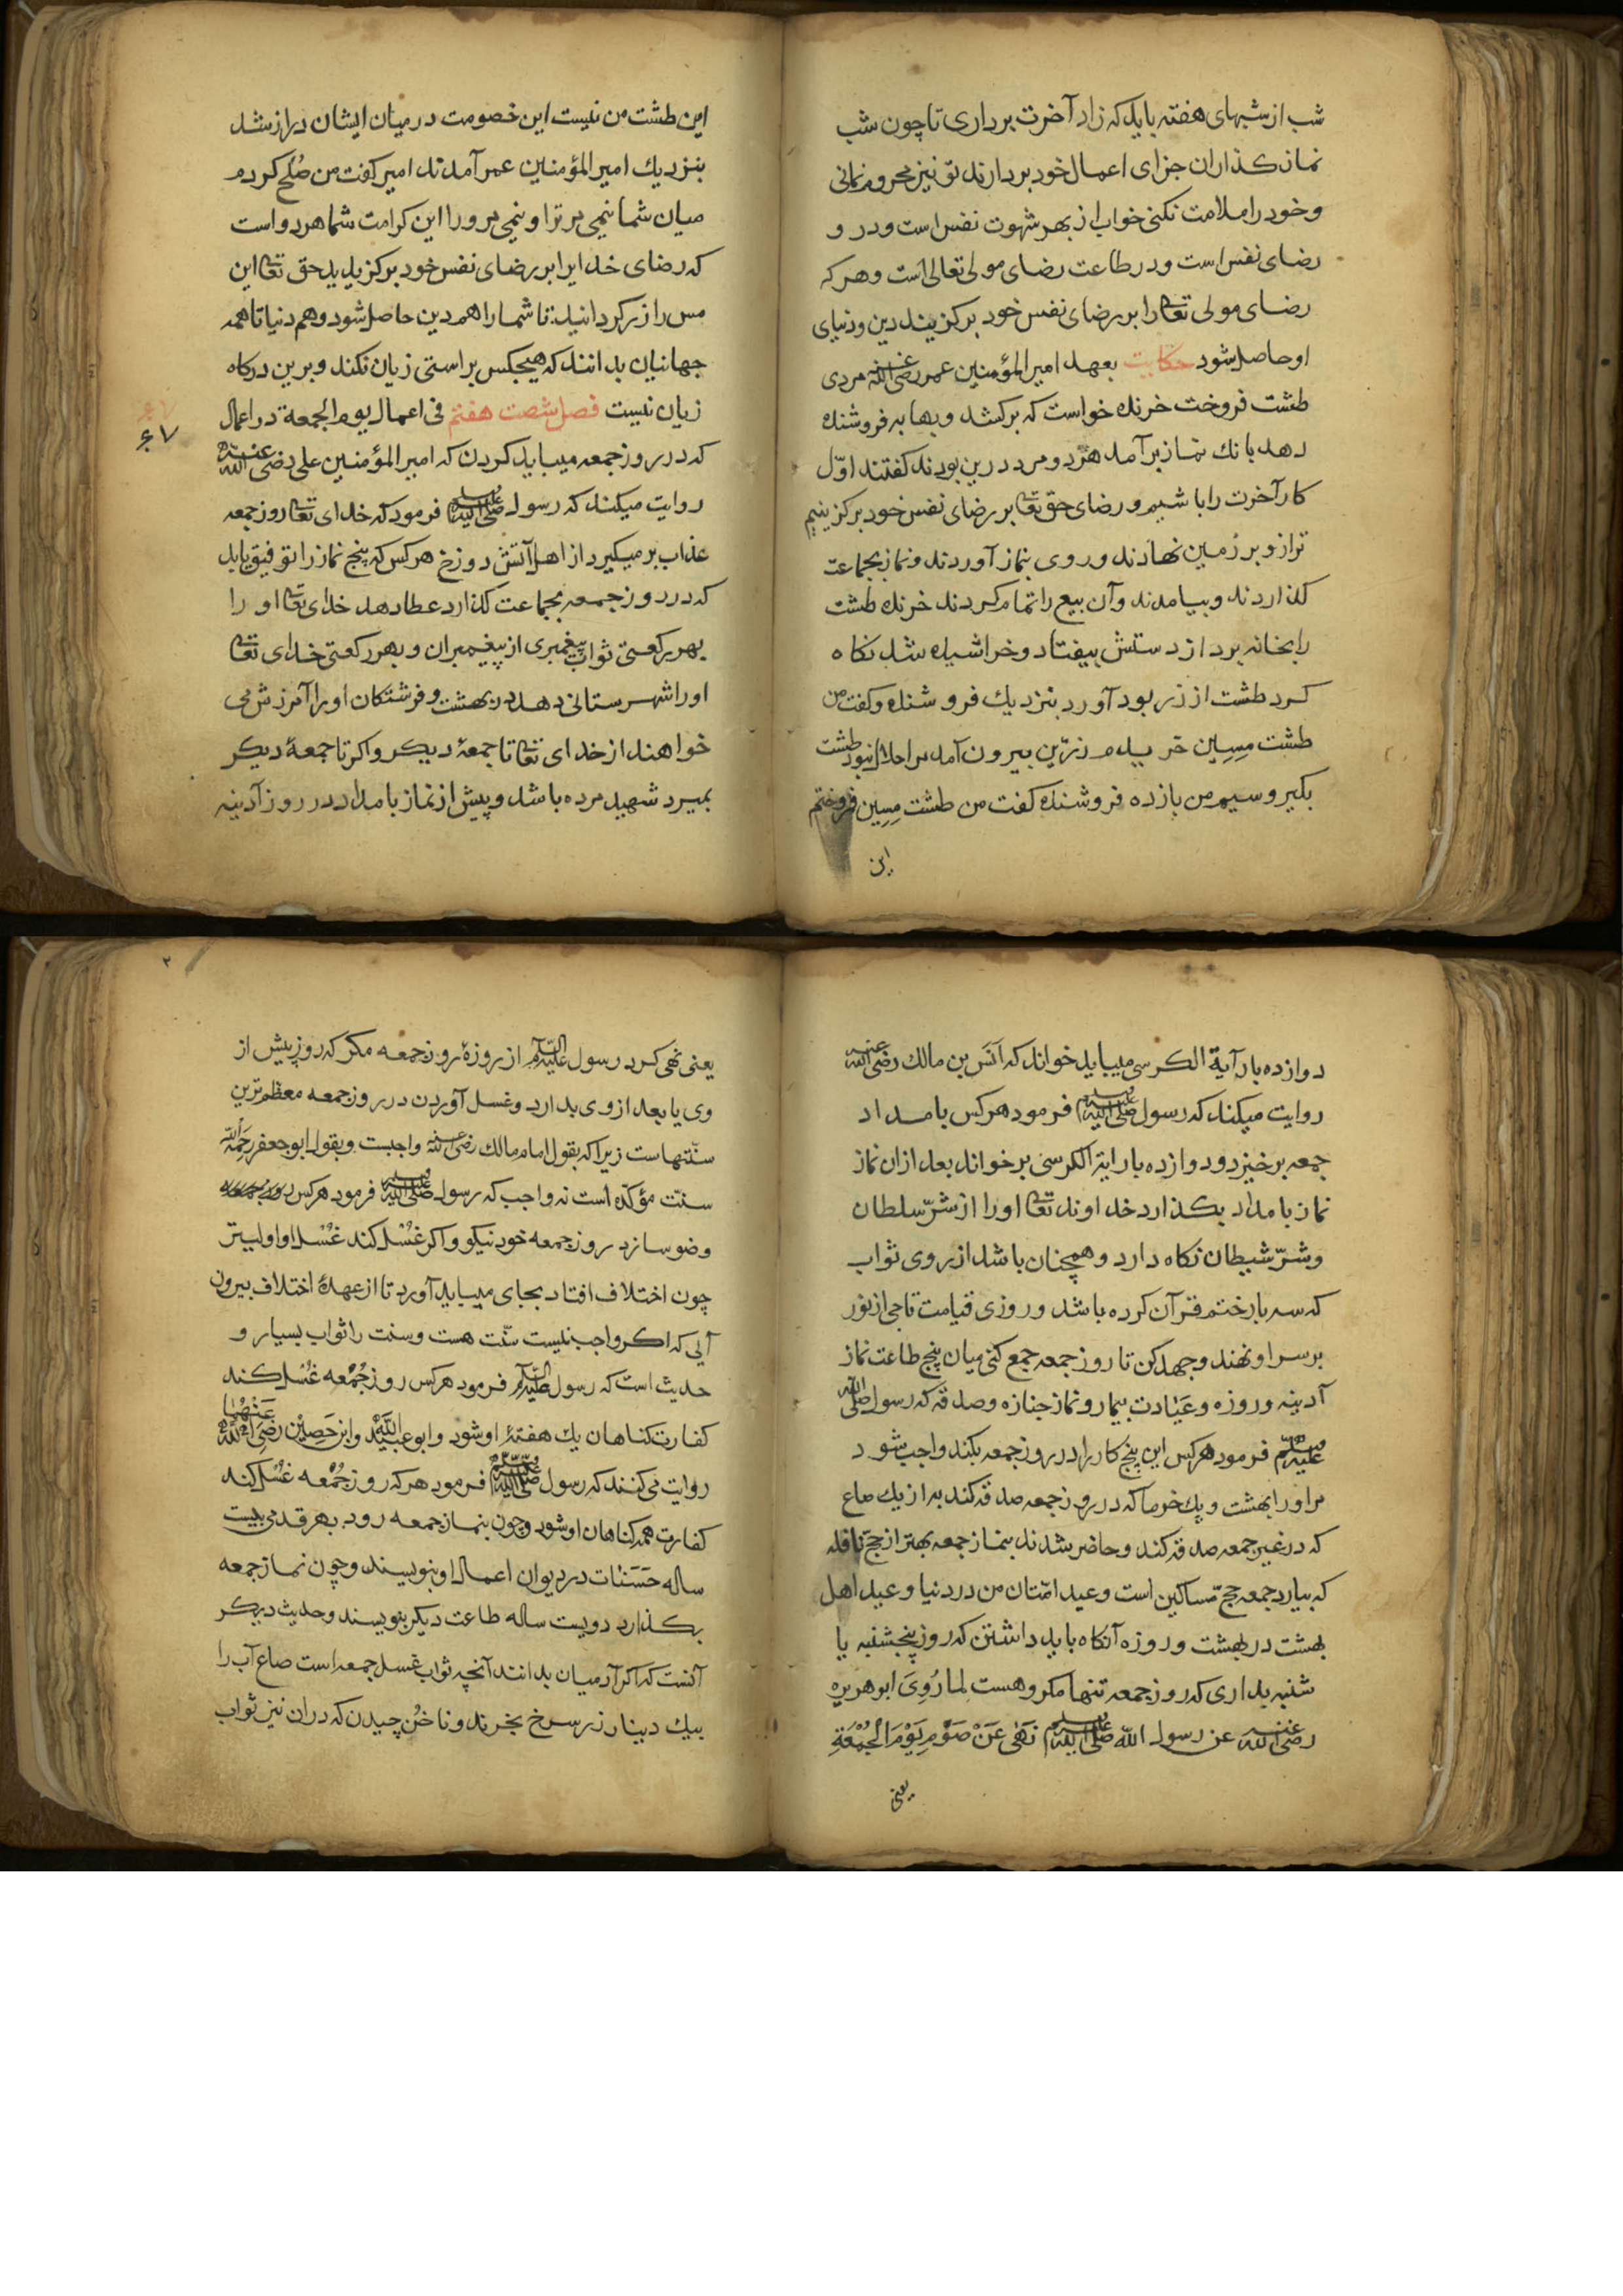 شب از شبهای هفته بایدکه زاد آخرت برداری تا چون شب
نماز کذاران جزای اعمال خود بردارند تو نیز محروم نمانی
وخود را ملامت نکنی خواب از بهر شهوت نفس است ودر و
رضای نفس است ودر طاعت رضای مولی تعالی است وهرکه
رضای مولی تعا را بر رضای نفس خود برکزیند دین ودنیای
او حاصل شود حکایت بعهد امیر المؤمنین عمر رضی الله عنه مردی
طشت فروخت خرنده خواست که برکشد وبها به فروشنده
دهد بانك نماز برآمد هردو مرد درین بودند کفتند اوّل
کار آخرت را باشیم ورضای حق تعا بر رضای نفس خود برکزینیم
ترازو بر زمین نهادند وروی بنماز آوردند ونماز بجماعت
کذاردند وبیامدند وآن بیع را تمام کردند خرنده طشت
را بخانه برد از دستش بیفتاد وخراشیده شد نکاه
کرد طشت از زر بود آورد بنزدیك فروشنده وکفت من
طشت مِسِین خریدم زرّین بیرون آمد مرا حلال نبود طشت
بکیر وسیم من بازده فروشنده کفت من طشت مِسِین فروختم
این
این طشت من نیست این خصومت در میان ایشان دراز شد
بنزدیك امیر المؤمنین عمر آمدند امیر کفت من صُلح کردم
میان شما نیمی بر ترا ونیمی بر ورا این کرامت شما هردو است
که رضای خدایرا بر رضای نفس خود برکزیدید حق تعا این
مس را زر کردانید تا شما را هم دین حاصل شود وهم دنیا تا همه
جهانیان بدانند که هیچکس براستی زیان نکند وبرین درکاه
زیان نیست فصل شصت هفتم فی اعمال یوم الجمعة در اعمال
۶۷
۶۷
که در روز جمعه میباید کردن که امیر المؤمنین علی رضی الله عنه
روایت میکند که رسول صلی الله علیه وسلم فرمود که خدای تعا روز جمعه
عذاب برمیکیرد از اهل آتش دوزخ هرکس که پنج نماز را توفیق یابد
که در روز جمعه بجماعت کذارد عطا دهد خدای تعا او را
بهر رکعتی ثواب پیغمبری از پیغمبران وبهر رکعتی خدای تعا
اورا شهرستانی دهد در بهشت وفرشتکان اورا آمرزش می
خواهند از خدای تعا تا جمعهٔ دیکر واکر تا جمعهٔ دیکر
بمیرد شهید مرده باشد وپیش از نماز بامداد در روز آدینه
دوازده بار آیة الکرسی میباید خواند که اَنَس بن مالك رضی الله عنه
روایت میکند که رسول صلی الله علیه وسلم فرمود هرکس بامداد
جمعه برخیزد ودوازده بار ایة الکرسی برخواند بعد ازان نماز
نماز بامداد بکذارد خداوند تعا اورا از شرّ سلطان
وشرّ شیطان نکاه دارد وهمچنان باشد از روی ثواب
که سه بار ختم قرآن کرده باشد وروزی قیامت تاجی از نور
برسر او نهند وجهد کن تا روز جمعه جمع کنی میان پنج طاعت نماز
آدینه وروزه وعیادت بیمار ونماز جنازه وصدقه که رسول صلی الله
علیه وسلم فرمود هرکس این پنج کار را در روز جمعه بکند واجب شود
مر اورا بهشت ویك خرما که در روز جمعه صدقه کند به از یك صاع
که در غیر جمعه صدقه کند وحاضر شدند بنماز جمعه بهتر از حجّ نافله
که بیارد جمعه حجّ مساکین است وعید امّتان من در دنیا وعید اهل
بهشت در بهشت وروزه آنکاه باید داشتن که روز پنجشنبه یا
شنبه بداری که روز جمعه تنها مکروهست لما رُوِیَ ابو هریره
رضی الله عنه عن رسول الله صلی الله علیه وسلم نَهٰی عَنْ صَوْمِ یَوْمِ الْجُمُعَةِ
یعنی
یعنی نهی کرد رسول علیه السلام از روزهٔ روز جمعه مکر که روز پیش از
وی یا بعد از وی بدارد وغسل آوردن در روز جمعه معظم ترین
سنّتهاست زیرا که بقول امام مالك رضی الله عنه واجبست وبقول ابو جعفر رحمه الله
سنّت مؤکّده است نه واجب که رسول صلی الله علیه وسلم فرمود هرکس روز جمعه
وضو سازد روز جمعه خود نیکو واکر غُسْل کند غُسْل او اولیتر
چون اختلاف افتاد بجای میباید آورد تا از عهدهٔ اختلاف بیرون
آیی که اکر واجب نیست سنّت هست وسنت را ثواب بسیار و
حدیث است که رسول علیه السلام فرمود هرکس روز جُمُعه غُسْل کند
کفارت کناهان یك هفتهٔ او شود وابو عبیدة وابن حصین رضی الله عنهما
روایت می کنند که رسول صلی الله علیه وسلم فرمود هرکه روز جُمُعه غُسْل کند
کفارت همه کناهان او شود وچون بنماز جمعه رود بهر قدمی بیست
ساله حَسَنات در دیوان اعمال او بنویسند وچون نماز جمعه
بکذارد دویست ساله طاعت دیکر بنویسند وحدیث دیکر
آنست که اکر آدمیان بدانند آنچه ثواب غسل جمعه است صاع آب را
بیك دینار زر سرخ بخرند وناخُن چیدن که دران نیز ثواب